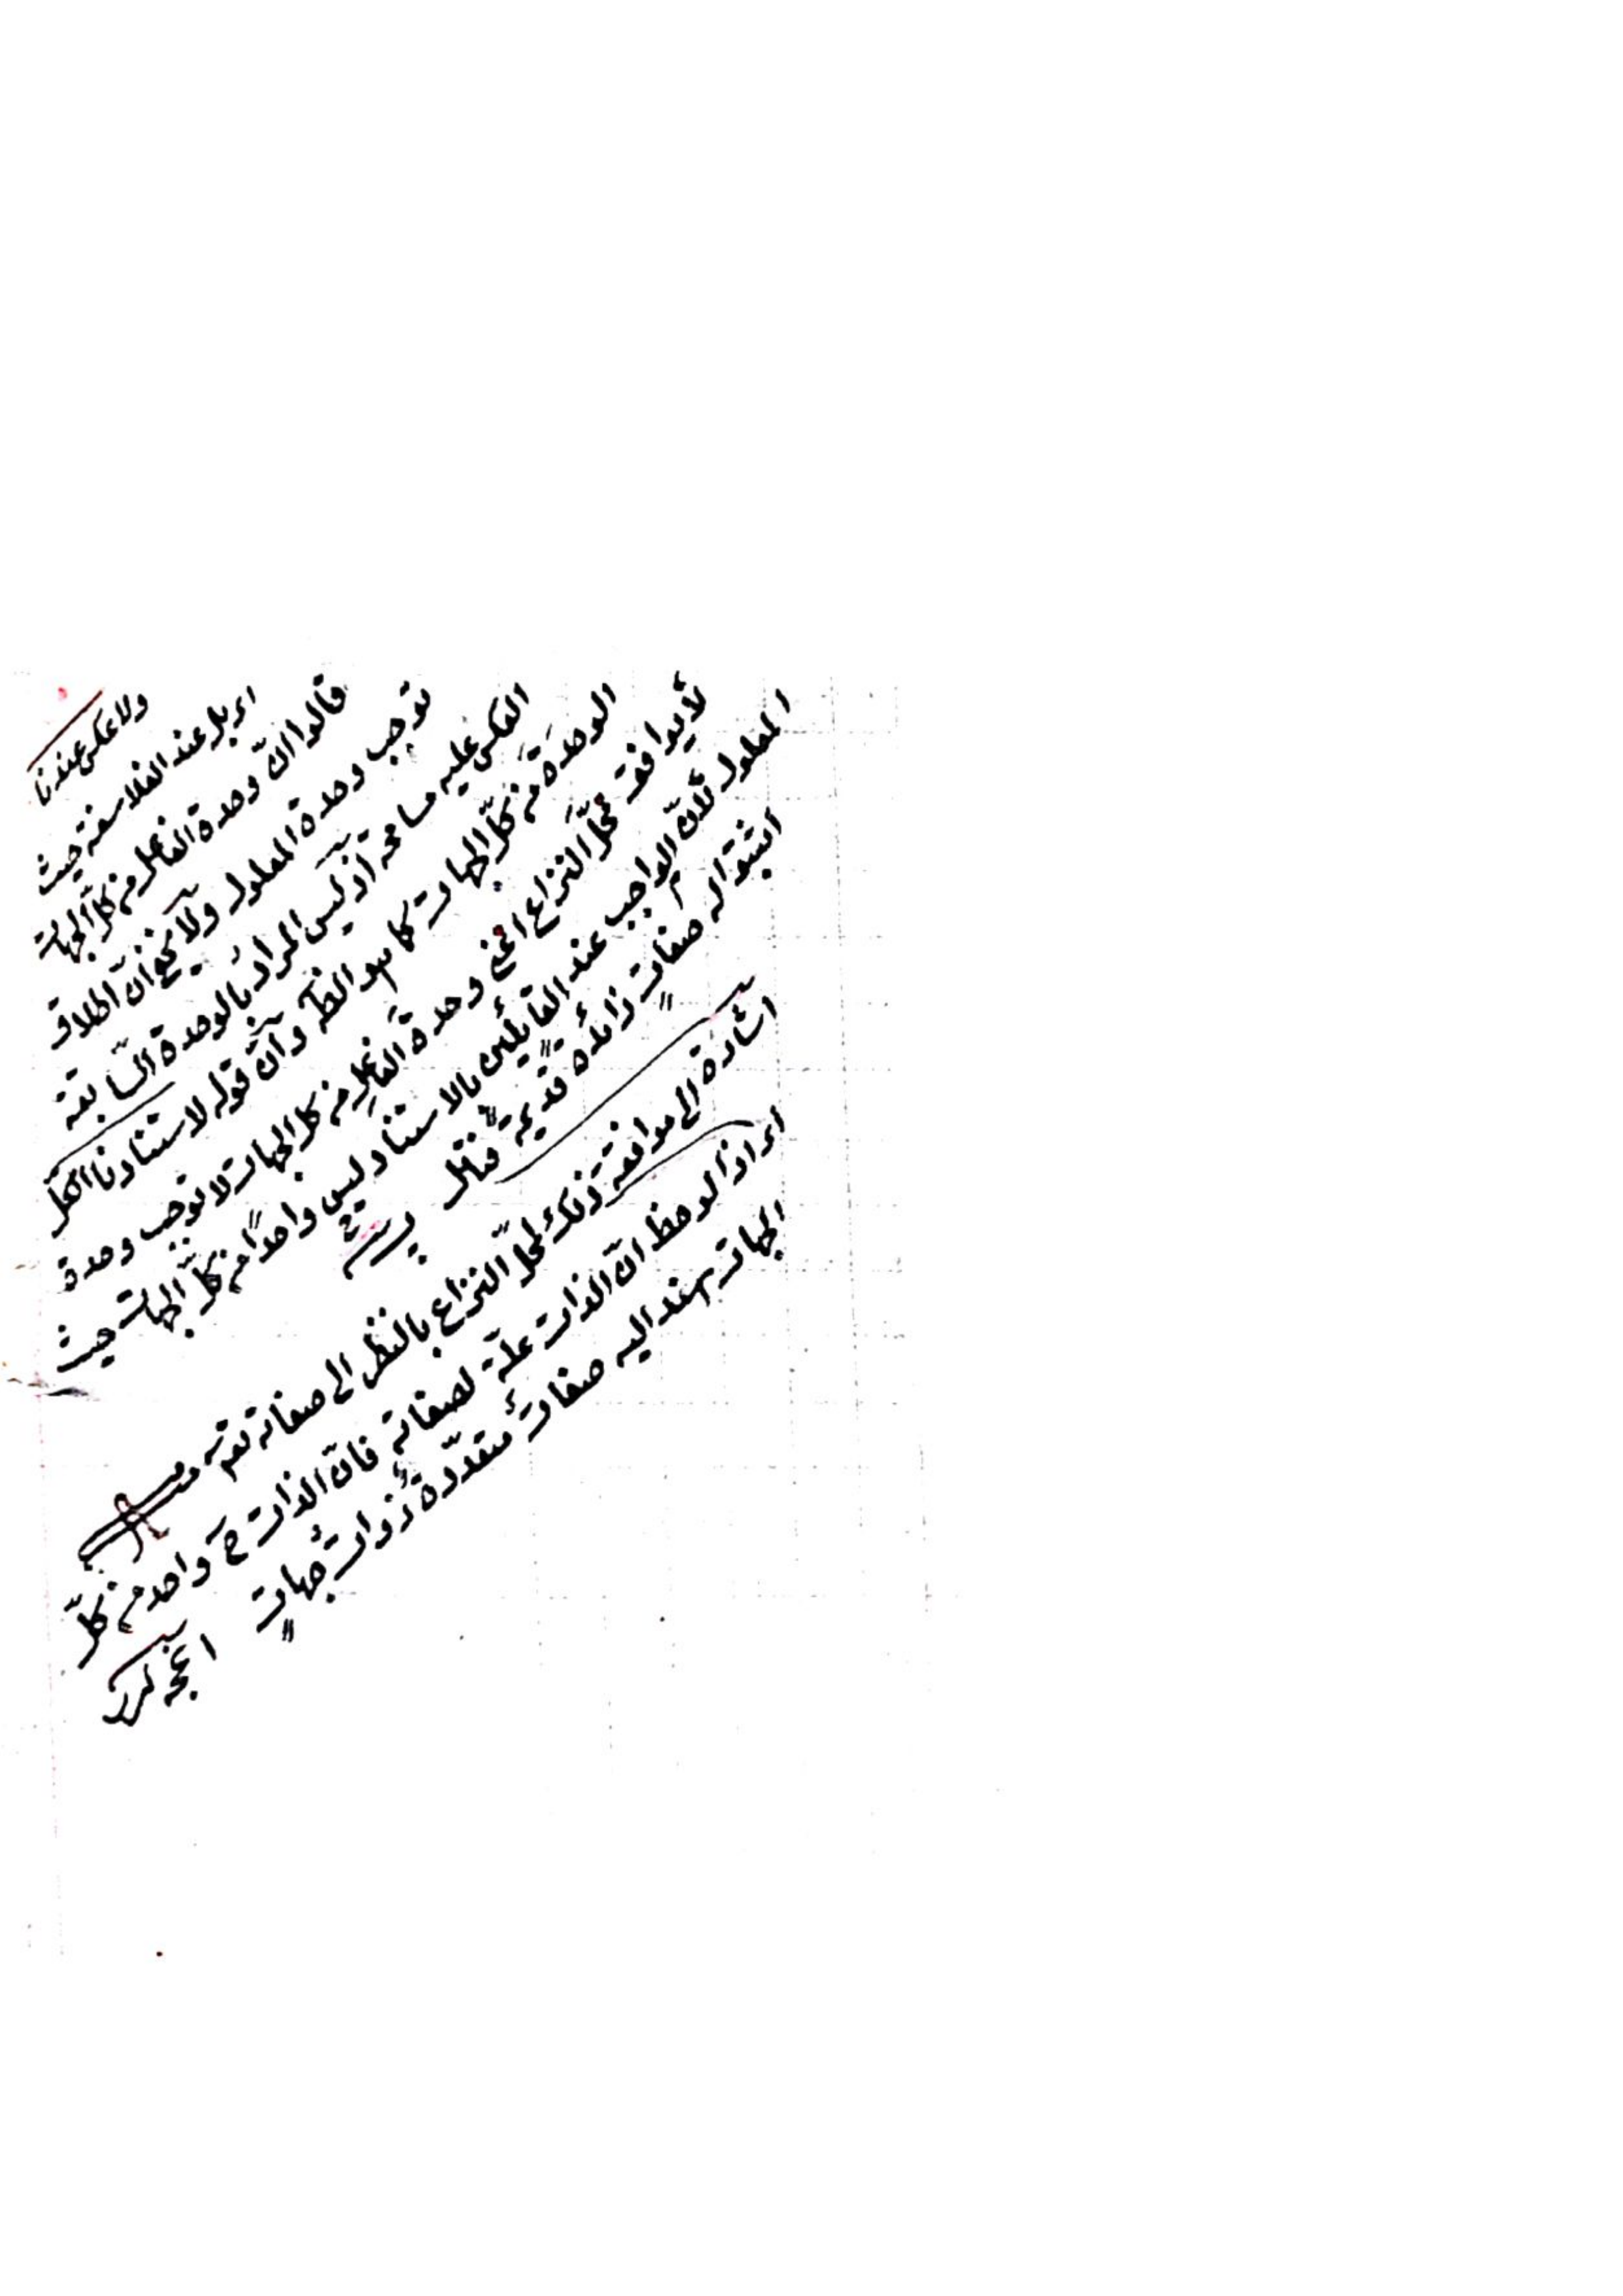 ولا عكس عندنا
اى بل عند الفلاسفة حيث
قالوا انّ وحدة الفاعل من كلّ الجهات
توجب وحدة المعلول ولا يخفى انّ اطلاق
العكس عليه مسامحة اذ ليس المراد بالوحدة السّابقة
الوحدة من كلّ الجهات كما هو الظ وانّ قوله لاستناد
لا يوافق محلّ النزاع اعنى وحدة الفاعل من كل الجهات لا توجب وحدة
المعلول لانّ الواجب عند القائلين بالاستناد ليس واحدًا من كلّ الجهات حيث
اثبتوا له صفاتٍ زائدة قديمةً فتأمّل
اشارة الى موافقة ذلك لمحلّ النزاع بالنظر الى صفاته تعم
اى اذا لوحظ انّ الذات علّة لصفاته فانّ الذات ح واحد من كلّ
الجهات يستند اليه صفاتٌ متعدّدة ذوات جهاتٍ